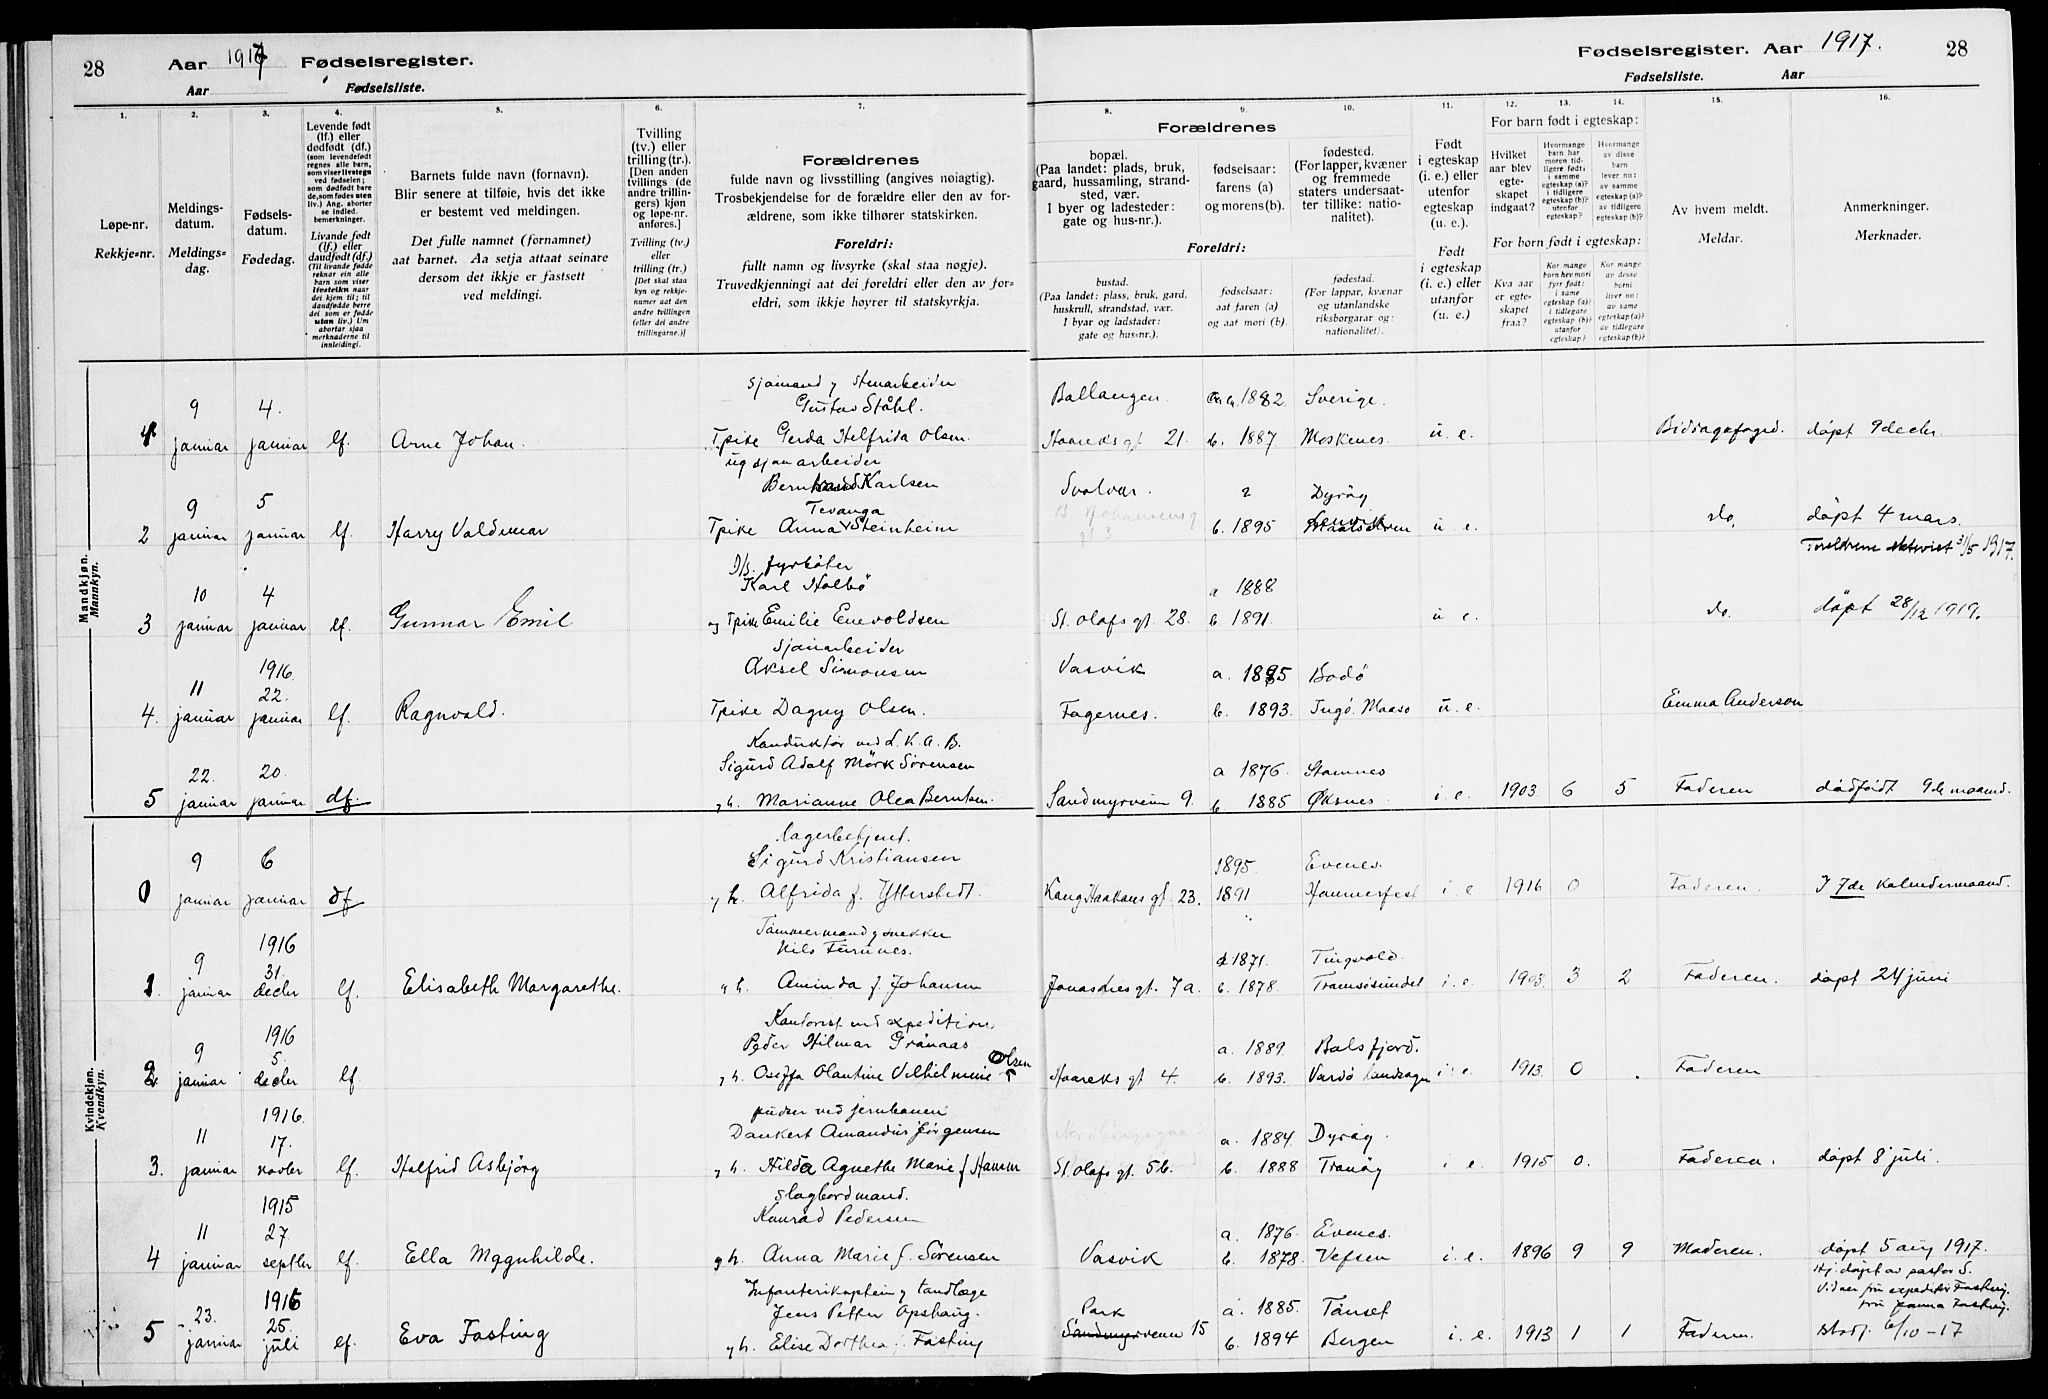 28 Aar 1917 Fødselsregister.
Aar Fødselsliste.
Fødselsregister. Aar 1917. 28
Fødselsliste. Aar
1. 2. 3. 4. 5. 6. 7. 8. 9. 10. 11. 12. 13. 14. 15. 16.
Løpe-nr.
Rekkje-nr.
Meldings-
datum.
Meldings-
dag.
Fødsels-
datum.
Fødedag.
Levende født
(lf.) eller
dødfødt (df.)
(som levendefødt
regnes alle barn,
som viser livstegn
ved fødselen;
som dødfødt bare
de, som fødes uten
liv.) Ang. aborter
se indled.
bemerkninger.
Livande født
(lf.) eller
daudfødt (df.)
(Til livande fødde
reknar ein alle
barn som viser
livsteikn naar
dei kjem til; til
daudfødde berre
dei som er fødde
utan liv.) Um
abortar sjaa
merknaderne til
innleidingi.
Barnets fulde navn (fornavn).
Blir senere at tilføie, hvis det ikke
er bestemt ved meldingen.
Det fulle namnet (fornamnet)
aat barnet. Aa setja attaat seinare
dersom det ikkje er fastsett
ved meldingi.
Tvilling
(tv.) eller
trilling (tr.).
[Den anden
tvillings (de
andre trillin-
gers) kjøn
og løpe-nr.
anføres.]
Tvilling (tv.)
eller
trilling (tr.)
[Det skal staa
kyn og rekkje-
numer aat den
andre tvillingen
(eller dei andre
trillingarne.)]
Forældrenes
fulde navn og livsstilling (angives nøiagtig).
Trosbekjendelse for de forældre eller den av for-
ældrene, som ikke tilhører statskirken.
Foreldri:
fullt namn og livsyrke (skal staa nøgje).
Truvedkjenningi aat dei foreldri eller den av for-
eldri, som ikkje høyrer til statskyrkja.
Forældrenes
bopæl.
(Paa landet: plads, bruk,
gaard, hussamling, strand-
sted, vær.
I byer og ladesteder:
gate og hus-nr.).
fødselsaar:
farens (a)
og morens (b).
fødested.
(For lapper, kvæner
og fremmede
staters undersaat-
ter tillike: natio-
nalitet).
Foreldri:
bustad.
(Paa landet: plass, bruk, gard,
huskrull, strandstad, vær.
I byar og ladstader:
gate og hus-nr.).
fødselsaar:
aat faren (a)
og aat mori (b).
fødestad.
(For lappar, kvænar
og utanlandske
riksborgarar og:
nationalitet).
Født
i egteskap
(i. e.) eller
utenfor
egteskap
(u. e.).
Født
i egteskap
(i. e.) eller
utanfor
(u. e.)
For barn født i egteskap:
Hvilket
aar blev
egte-
skapet
indgaat?
Hvormange
barn har
moren tid-
ligere født:
i samme
egteskap (a)?
i tidligere
egteskap (b)?
utenfor
egteskap?
Hvormange
av disse
barn
lever nu:
av samme
egteskap (a)?
av tidligere
egteskap (b)?
For born født i egteskap:
Kva aar
er egte-
skapet
fraa?
Kor mange
born hev mori
fyrr født:
i same
egteskap (a)?
i tidlegare
egteskap (b)?
utanfor
egteskap?
Kor mange
av desse
borni
liver no:
av same
egteskap (a)?
av tidlegare
egteskap (b)?
Av hvem meldt.
Meldar.
Anmerkninger.
Merknader.
Mandkjøn.
Mannkyn.
Sjømand og stenarbeider
9 4. Gustav Ståhl. Ballangen. 1882 Sverige.
1 januar januar lf. Arne Johan. Tpike Gerda Helfrida Olsen. Haareks gt 21. b. 1887 Moskenes. u. e. Bidragsfoged. døpt 9 decbr.
ug sjauarbeider
9 5 Karlsen Svolvær. Dyrøy
Tevanga
2 januar januar lf. Harry Valdemar Tpike Anna Steinheim b. 1895 Lenvik u. e. do. døpt 4 mars.
D/s. fyrbøter
Forældrene 31/5 1917.
10 4 Karl Holbø a 1888
3 januar januar lf. Gunnar Emil og Tpike Emilie Enevoldsen St. Olafs gt. 28. b. 1891. u e. do. døpt 28/12 1919.
sjauarbeider
1916. Aksel Simonsen Vasvik a. 1895 Bodø
11 22.
4. januar januar lf. Ragnvald. Tpike Dagny Olsen. Fagernes. b. 1893. Ingö. Maasø u. e. Emma Anderson
Konduktør ved L. K. A. B.
22. 20. Sigurd Adolf Mörk Sørensen a 1876. Stamnes
5 januar januar df. og h. Marianne Olea Berntsen. Sandmyrveien 9. b 1885 Øksnes. i. e. 1903. 6 5 Faderen dødfødt 9de maaned.
Kvindekjøn.
Kvendkyn.
Lagerbetjent.
9 6 Sigurd Kristiansen 1895. Evenes.
0 januar januar df og h. Alfrida f. Ytterstedt. Kong Haakons gt. 23. 1891 Hammerfest i. e. 1916 0 Faderen. I 7de kalendermaaned.
Tømmermand og snekker
1916 Nils Furunes. a 1871. Tingvold.
9 31.
1. januar decbr lf. Elisabeth Margarethe. og h. Aminda f. Johansen Jonas Lies gt. 7a. b. 1878. Tromsøsundet i. e. 1903. 3 2 Faderen. døpt 24 juni
Kontorist ved expedition.
1916 Peder Hilmar Grönaas a. 1889. Balsfjord.
9 5. Olsen
2 januar decbr lf og h. Oseffa Olantine Vilhelmine Haareks gt 4. b. 1893. Vardø landsogn i. e. 1913. 0 . Faderen
1916. pudser ved jernbanen
11 17. Dankert Amandus Jörgensen a. 1884. Dyröy.
3. januar novbr lf. Halfrid Asbjörg og h. Hilda Agnethe Marie f Hansen St. Olafs gt. 56. b. 1888 Tranöy i e. 1915 0. Faderen. døpt 8 juli.
1915 Slagbordmand.
11 27. Konrad Pedersen a. 1876. Evenes.
4 januar septbr lf. Ella Magnhilde. og h. Anna Marie f. Sörensen Vasvik b. 1878. Vefsen i. e. 1896 9 9 Moderen. døpt 5 aug 1917.
Infanterikaptein og tandlæge Hj. døpt av pastor S.
1916 Jens Petter Opshaug. Park a. 1885. Tönset
23. 25.
5 januar juli lf. Eva Fasting og h. Elise Dorthea f. Fasting Sandmyrveien 15 b. 1894 Bergen i. e. 1913 1 1 Faderen. stadf. 6/10-17